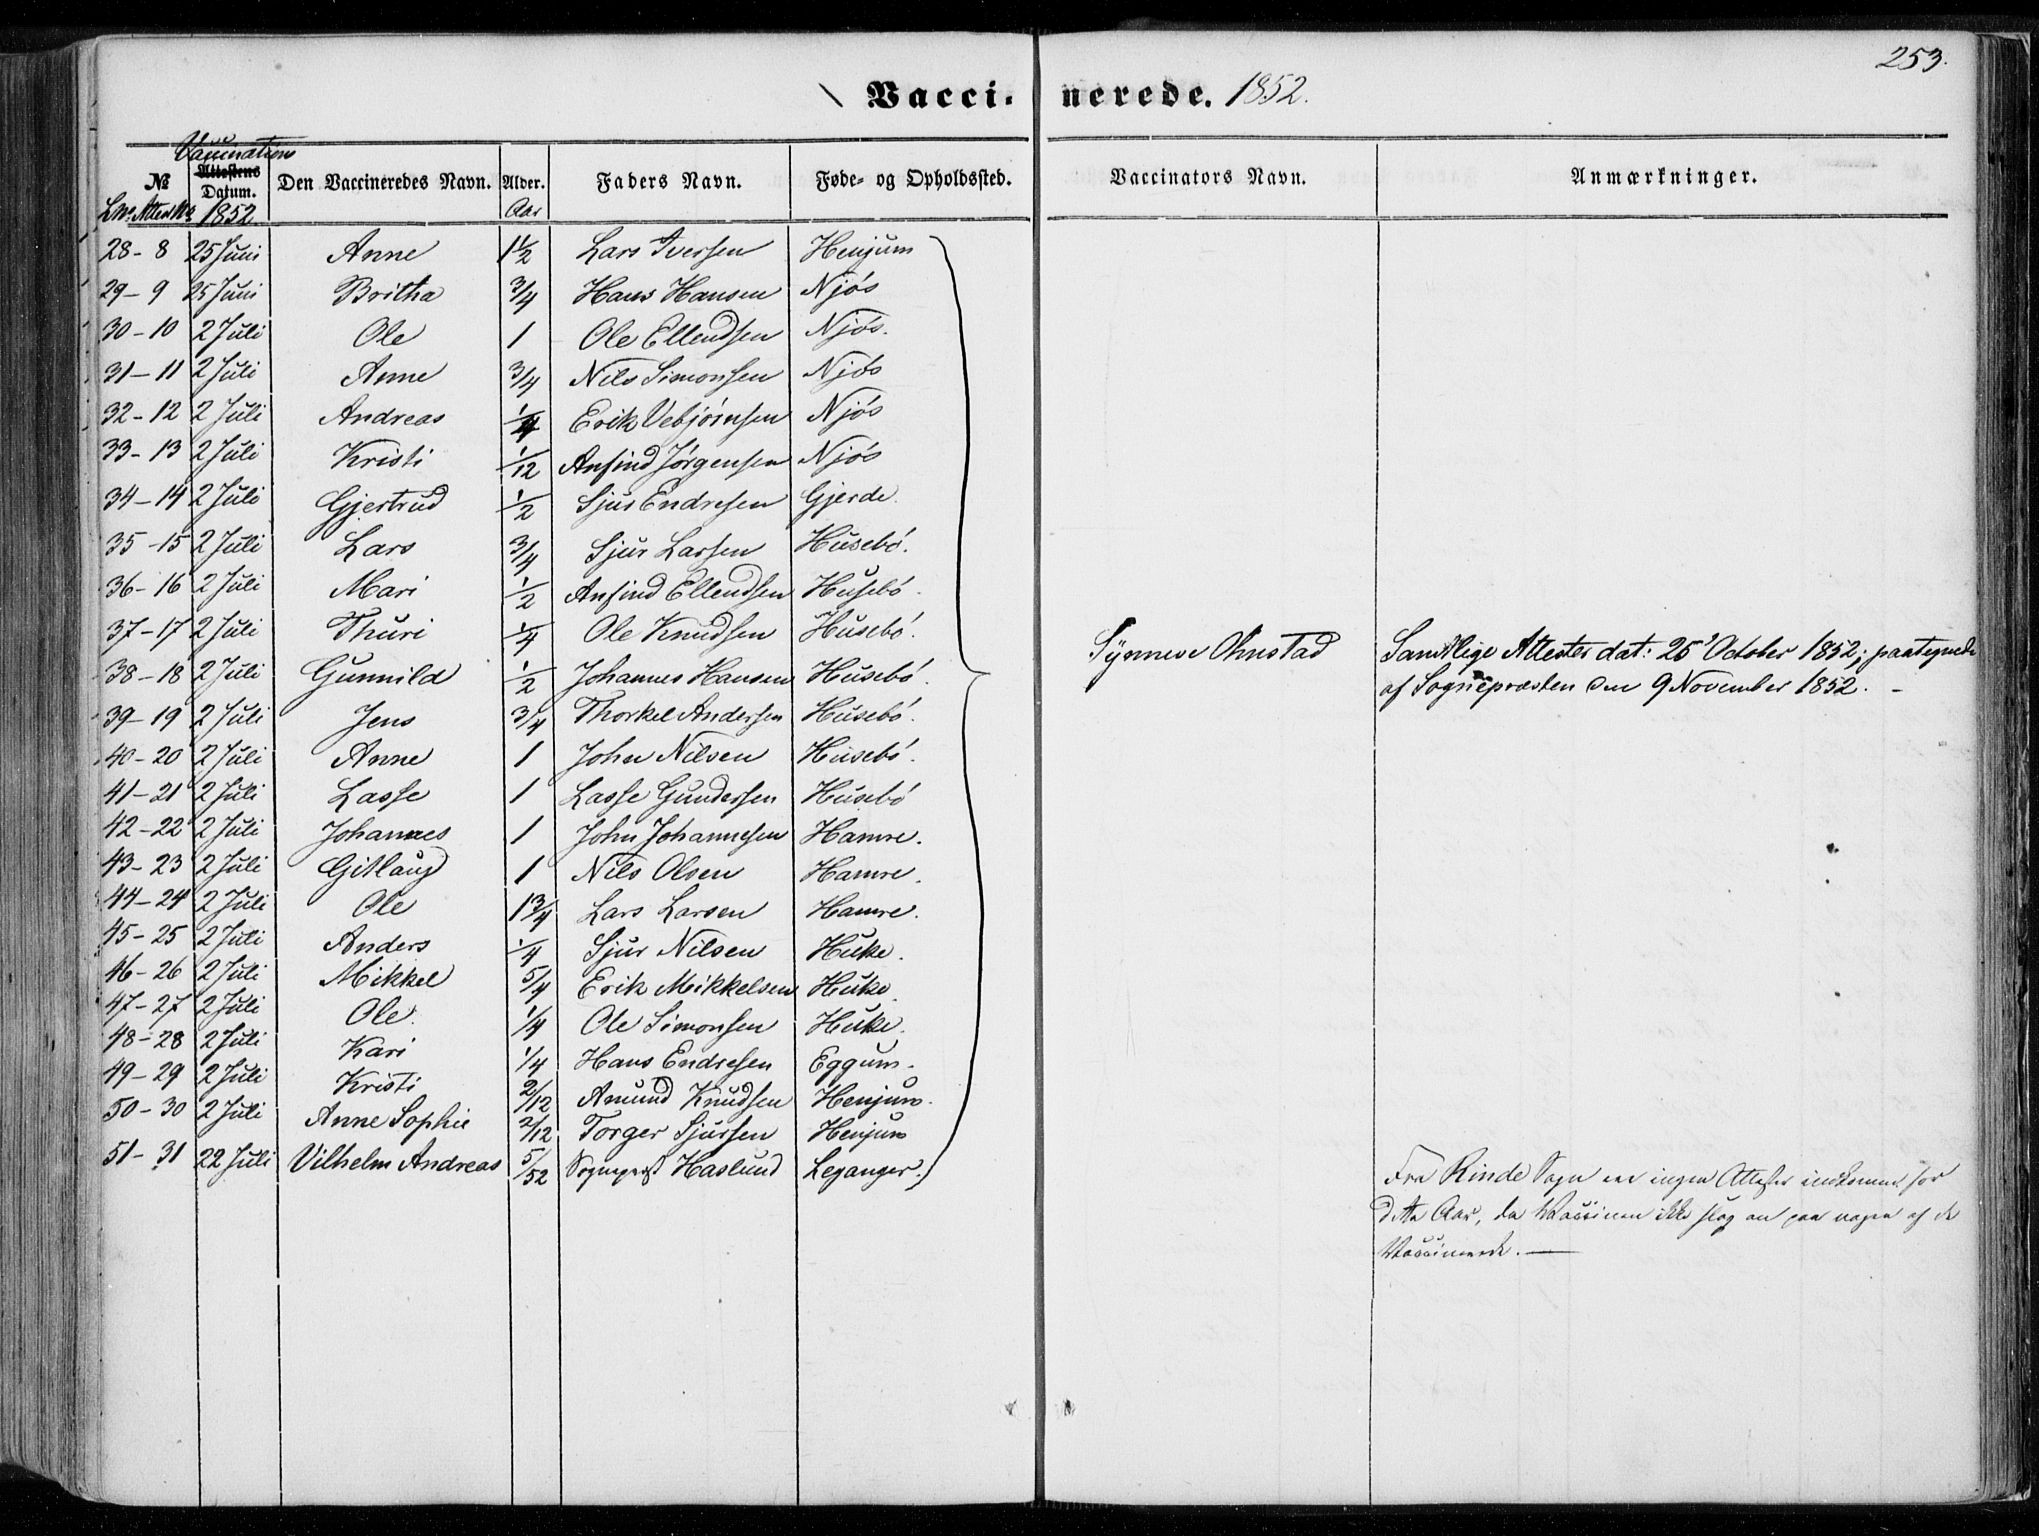 253.
Vaccinerede. 1852.
Vaccinations
No Attestens Datum. Den Vaccineredes Navn. Alder. Faders Navn. Føde- og Opholdssted. Vaccinators Navn. Anmærkninger.
LNo. Attest No 1852. Aar
28 - 8 25 Juni Anne 1 1/2 Lars Iversen Henjum
29 - 9 25 Juni Britha 3/4 Hans Hansen Njøs
30 - 10 2 Juli Ole 1 Ole Ellendsen Njøs.
31 - 11 2 Juli Anne 3/4 Nils Simonsen Njøs
32 - 12 2 Juli Andreas 1/4 Erik Vebjørnsen Njøs
33 - 13 2 Juli Kristi 1/12 Anfind Jørgensen Njøs
34 - 14 2 Juli Gjertrud 1/2 Sjur Endresen Gjerde.
35 - 15 2 Juli Lars 3/4 Sjur Larsen Husebø.
36 - 16 2 Juli Mari 1/2 Anfind Ellendsen Husebø.
37 - 17 2 Juli Thuri 1/4 Ole Knudsen Husebø.
38 - 18 2 Juli Gunnild 1/2 Johannes Hansen Husebø.
39 - 19 2 Juli Jens 3/4 Thorkel Andersen Husebø.
40 - 20 2 Juli Anne 1 John Nilsen Husebø.
41 - 21 2 Juli Lasse 1 Lasse Gundersen Husebø
42 - 22 2 Juli Johannes 1 John Johannesen Hamre.
43 - 23 2 Juli Gitlaug 1 Nils Olsen Hamre.
44 - 24 2 Juli Ole 1 3/4 Lars Larsen Hamre.
45 - 25 2 Juli Anders 1/4 Sjur Nilsen Huke.
46 - 26 2 Juli Mikkel 5/4 Erik Mikkelsen Huke.
47 - 27 2 Juli Ole. 1/4 Ole Simonsen Huke.
48 - 28 2 Juli Kari 1/4 Hans Endresen Eggum.
49 - 29 2 Juli Kristi 2/12 Amund Knudsen Henjum.
50 - 30 2 Juli Anne Sophie 2/12 Torger Sjursen Henjum
51 - 31 22 Juli Vilhelm Andreas 5/52 Sognepræst Haslund Leganger.
Synneve Ohnstad
Samtlige Attester dat: 25 October 1852; paategnede
af Sognepræsten den 9 November 1852. -
Fra Rinde Sogn ere ingen Attester indkomne for
dette Aar, da Vaccinen ikke slog an paa nogen af de
Vaccinerede. —